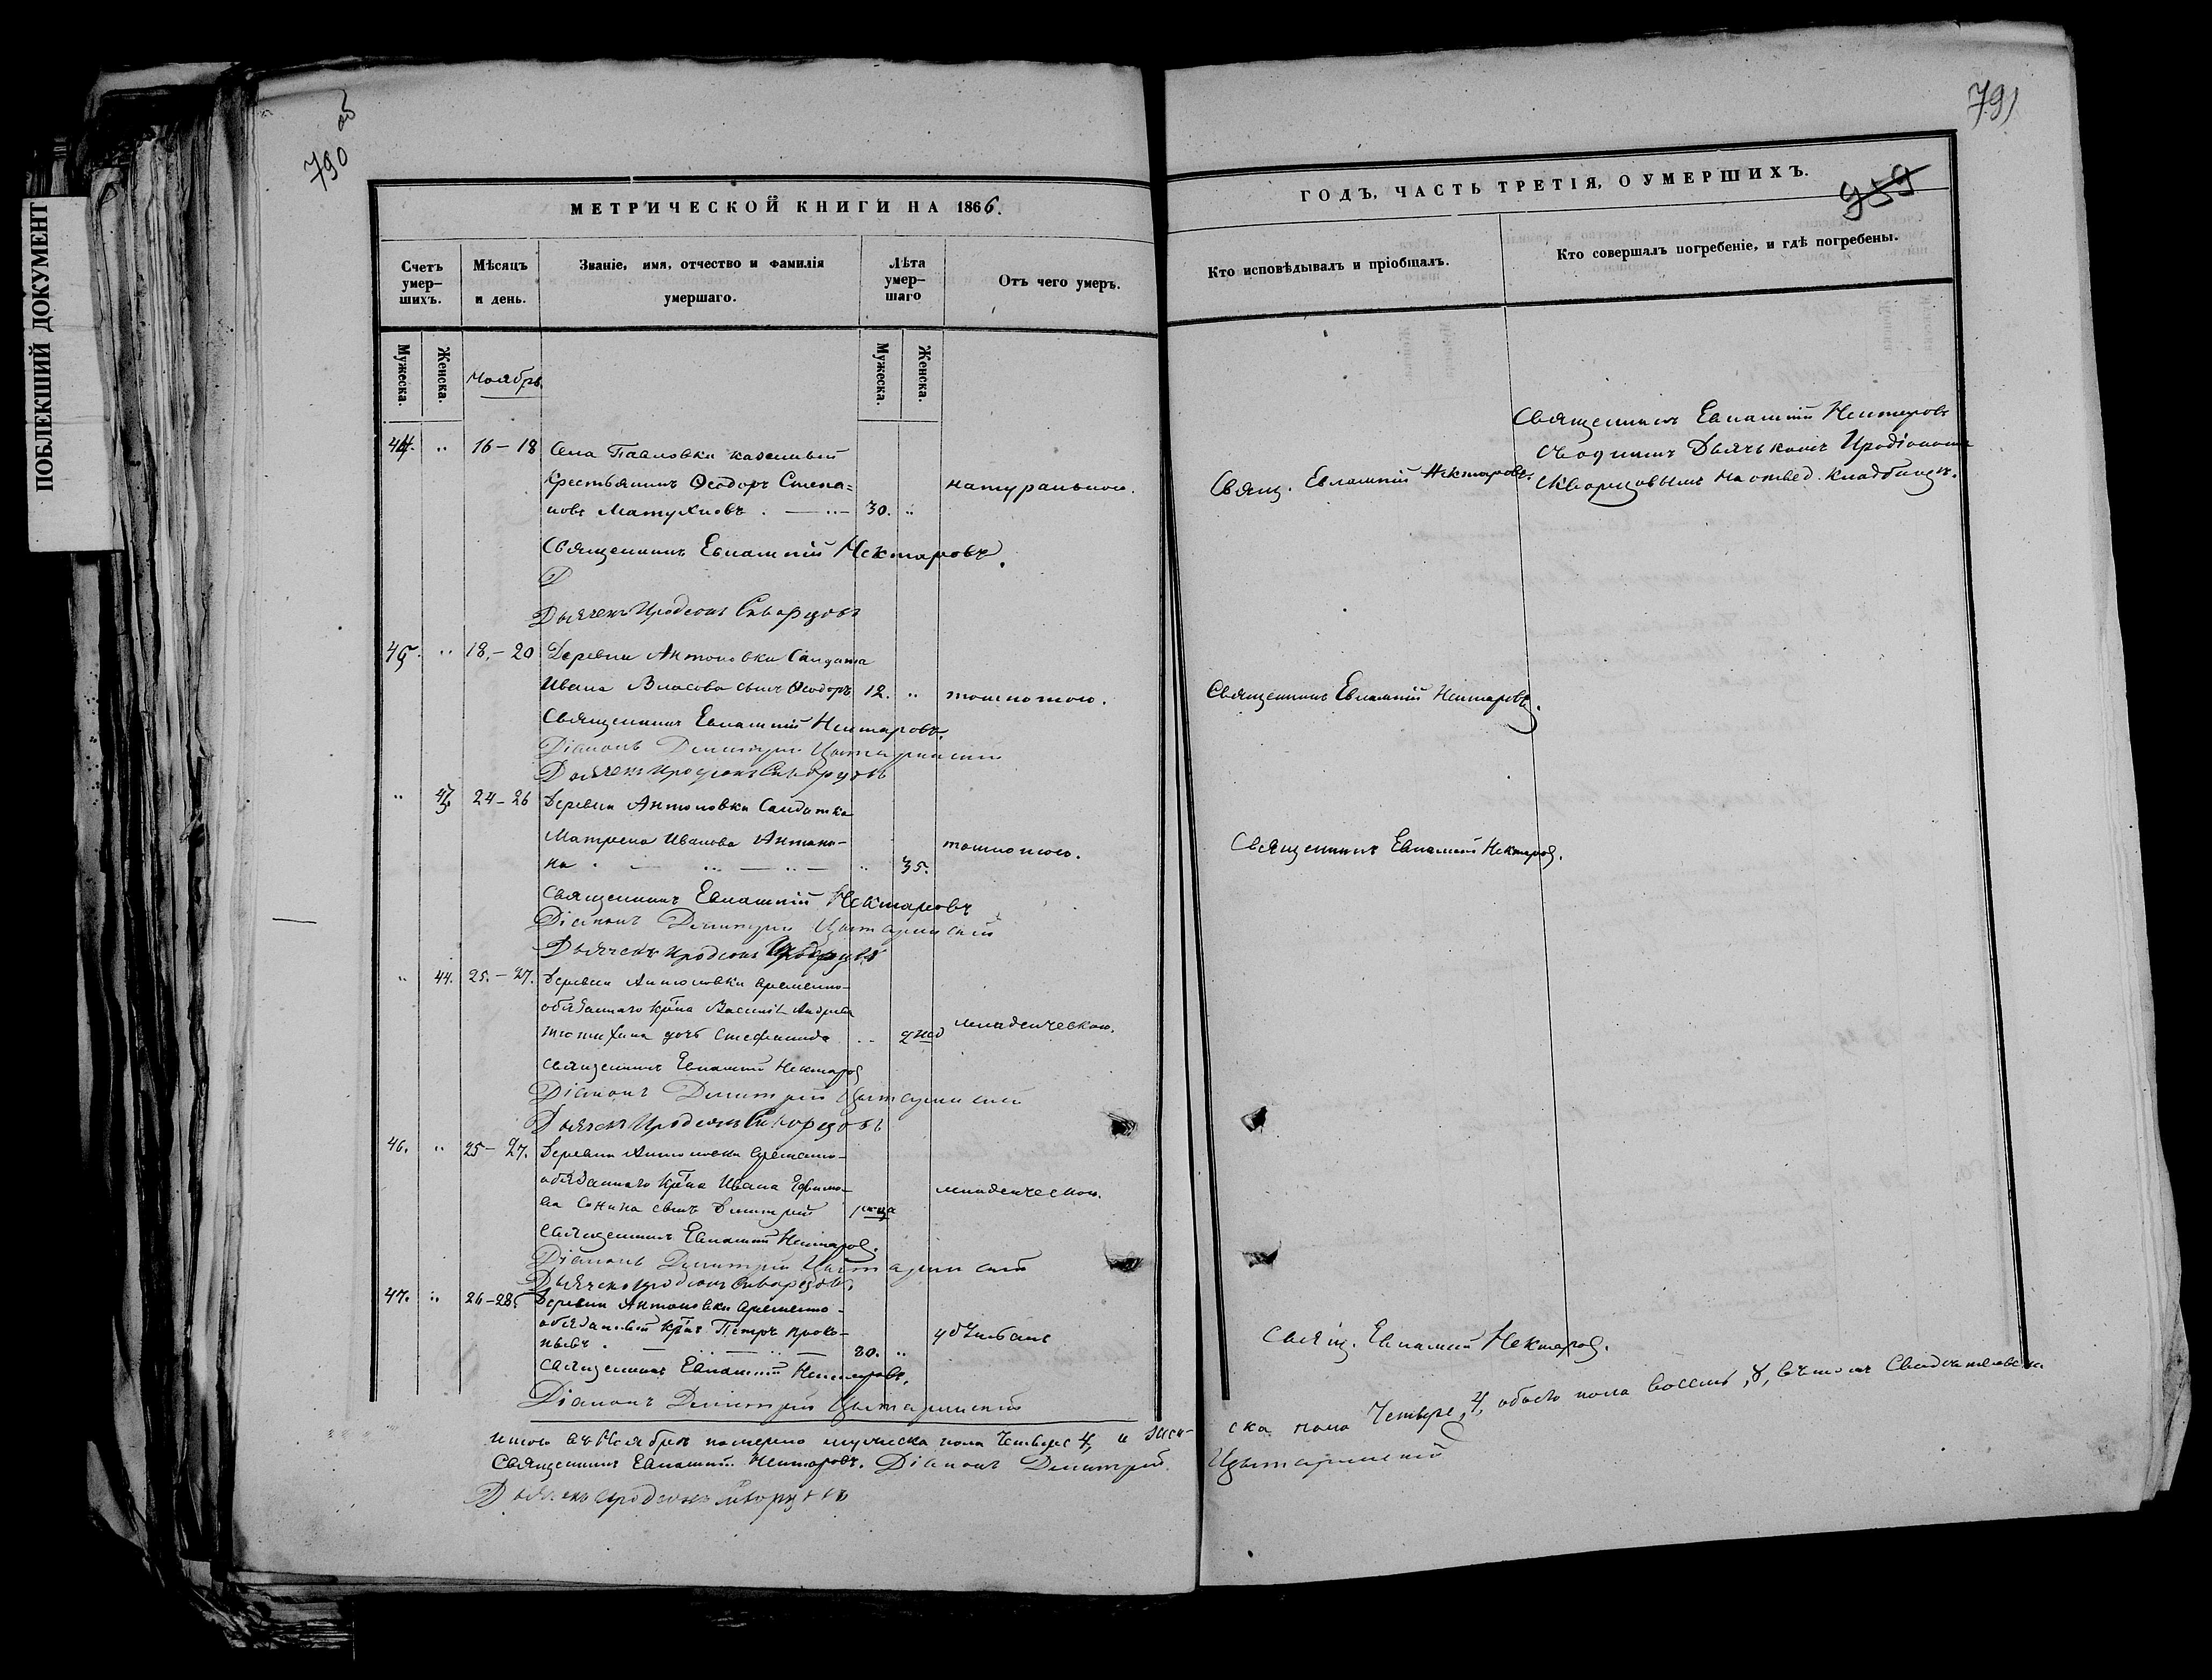 ПОБЛЕКШИЙ ДОКУМЕНТ
790 об
МЕТРИЧЕСКОЙ КНИГИ НА 1866.
Счетъ умер-шихъ.
Мѣсяцъ и день.
Званіе, имя, отчество и фамилія умершаго.
Лѣта умер-шаго
Отъ чего умеръ.
Мужеска.
Женска.
Ноябрь
Мужеска.
Женска.
44. " 16-18 Села Павловки казенный
Крестьянинъ Ѳеодоръ Степа=
новъ Матухновъ 30. " натуральною.
Священникъ Евлампій Нектаровъ.
Д
Дьячекъ Иродіонъ Скворцовъ
45. " 18.-20 Деревни Антоновки Салдата
Ивана Власова сынъ Ѳеодоръ 12. " тошнотою.
Священникъ Евлампій Нектаровъ.
Діаконъ Димитрій
Дьячекъ Иродіонъ Скворцовъ
" 43 24-26 Деревни Антоновки Салдатка
Матрена Иванова Антоно-
на " 35. тошнотою.
Священникъ Евлампій Нектаровъ
Діаконъ Димитрій
Дьячекъ Иродіонъ
" 44. 25.-27. Деревни Антоновки временно-
обязаннаго кр-на Василія Андреева
дочь Стефанида младенческою.
Священникъ Евлампій Нектаровъ
Діаконъ Димитрій
Дьячекъ Иродіонъ Скворцовъ
46. " 25-27. Деревни Антоновки временно-
обязаннаго кр-на Ивана Ефимо-
ва Сонина сынъ Димитрій младенческою.
Священникъ Евлампій Нектаровъ.
Діаконъ Димитрій
Дьячекъ Иродіонъ Скворцовъ.
47. " 26-28. Деревни Антоновки временно-
обязанный кр-нъ Петръ Проко-
пьевъ. 20. "
Священникъ Евлампій Нектаровъ.
Діаконъ Димитрій
Итого въ Ноябрѣ померло мужеска пола Четверо 4, и жен-
Священникъ Евлампій Нектаровъ. Діаконъ Димитрій
Дьячекъ Иродіонъ Скворцовъ
791
959
ГОДЪ, ЧАСТЬ ТРЕТІЯ, О УМЕРШИХЪ.
Кто исповѣдывалъ и пріобщалъ.
Кто совершалъ погребеніе, и гдѣ погребены.
Священникъ Евлампій Нектаровъ
съ Дьячкомъ Иродіономъ
Свящ. Евлампій Нектаровъ. Скворцовымъ на отвед. кладбищѣ.
Священникъ Евлампій Нектаровъ.
Священникъ Евлампій Нектаровъ.
Свящ. Евлампій Нектаровъ.
ска пола Четверо, 4, обоего пола восемь, 8, въ томъ